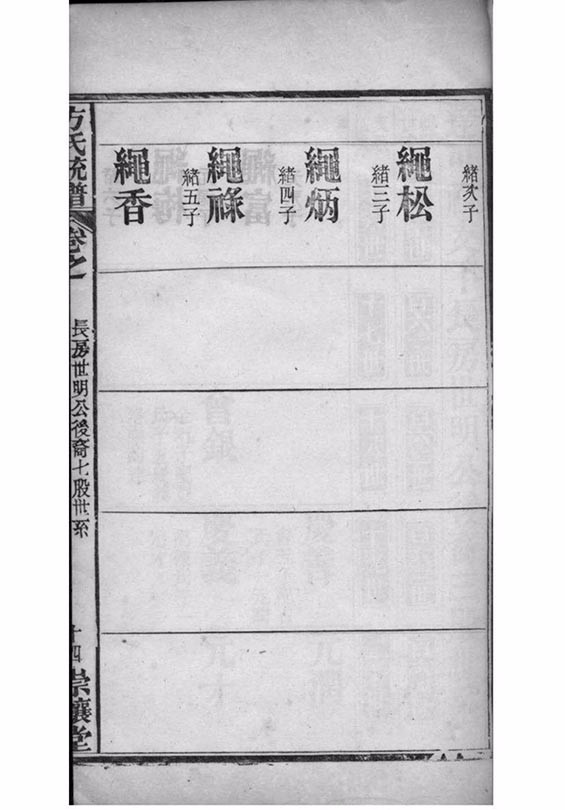 緒次子
繩松
緒三子
繩炳
緒四子
繩祿
緒五子
繩香
方氏統譜
卷之一
長房世明公後裔七股世系
十四
崇讓堂